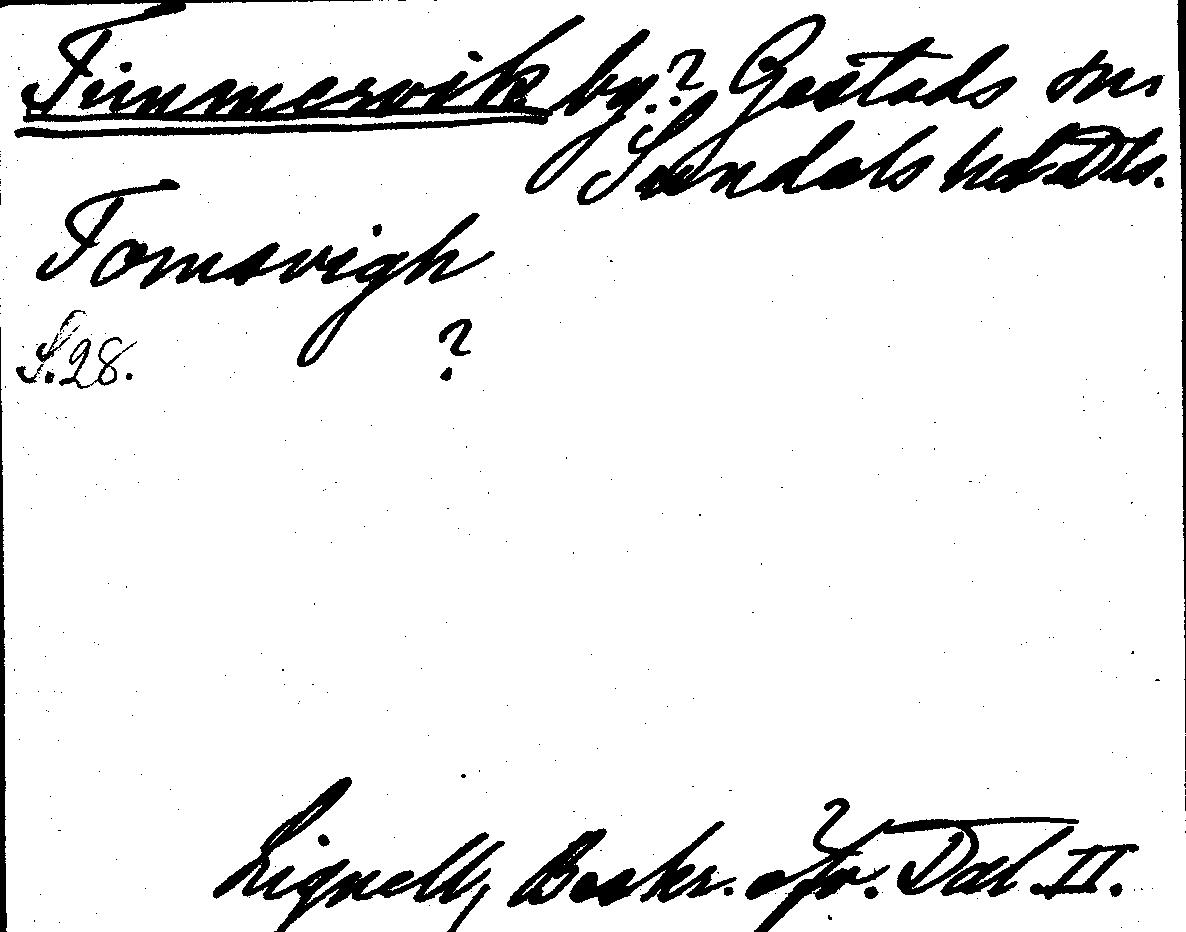 Timmervik by? Gestads sn.
Sundals hd. Dls.
Tomasvigh
S. 28. ?
Lignell, Beskr. öfv. Dal. II.